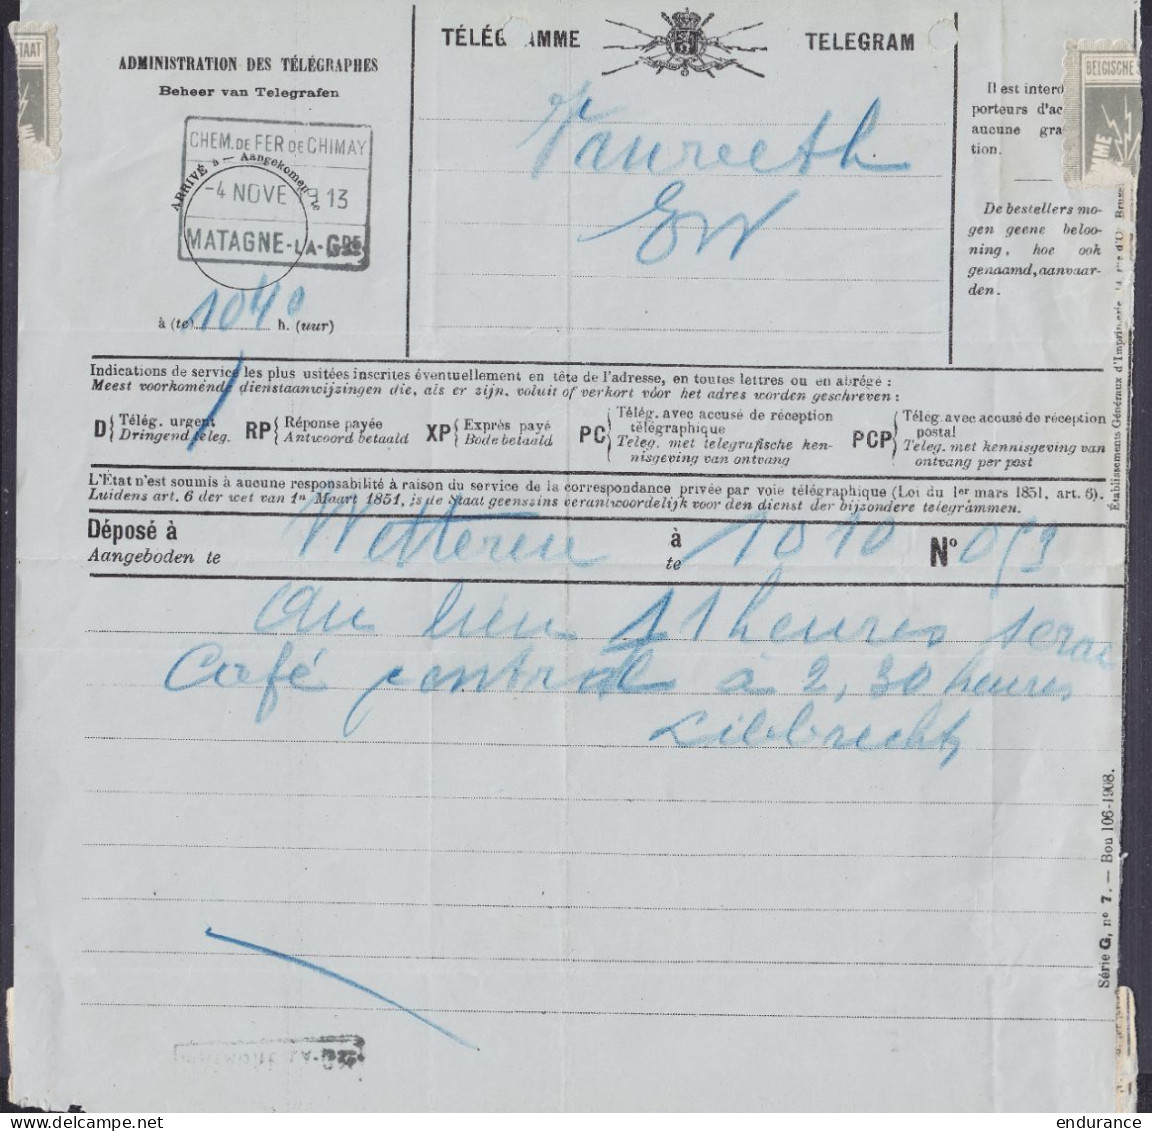 STAAT
ADMINISTRATION DES TÉLÉGRAPHES
Beheer van Telegrafen
CHEM. DE FER DE CHIMAY
ARRIVÉ à — Aangekomen te
-4 NOVE 13
MATAGNE-LA-GDE
à (te) 10 40 h. (uur)
TÉLÉG AMME TELEGRAM
EW
Il est interd
porteurs d'ac
aucune gra
tion.
De bestellers mo-
gen geene beloo-
ning, hoe ook
genaamd, aanvaar-
den.
BELGISCHE S
Indications de service les plus usitées inscrites éventuellement en tête de l'adresse, en toutes lettres ou en abrégé :
Meest voorkomende dienstaanwijzingen die, als er zijn, voluit of verkort vóór het adres worden geschreven :
D { Télég. urgent
Dringend teleg.
RP { Réponse payée
Antwoord betaald
XP { Exprès payé
Bode betaald
PC { Télég. avec accusé de réception
télégraphique
Teleg. met telegrafische ken-
nisgeving van ontvang
PCP { Télég. avec accusé de réception
postal
Teleg. met kennisgeving van
ontvang per post
L'État n'est soumis à aucune responsabilité à raison du service de la correspondance privée par voie télégraphique (Loi du 1er mars 1851, art. 6).
Luidens art. 6 der wet van 1n Maart 1851, is de Staat geenszins verantwoordelijk voor den dienst der bijzondere telegrammen.
Déposé à Wetteren à 10 10 No
Aangeboden te te
au lieu 11 heures serai
Café central à 2,30 heures
Libbrecht
Établissements Généraux d'Imprimerie
Série G, no 7. — Bon 106-1908.
endurance